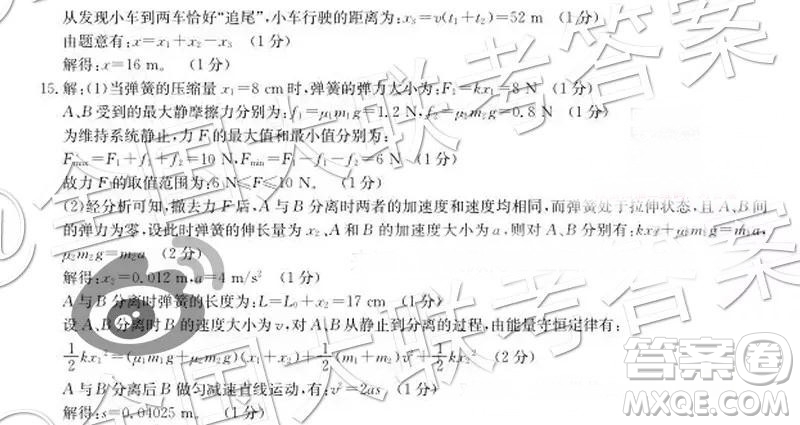 从发现小车到两车恰好“追尾”,小车行驶的距离为:x₃=v(t₁+t₂)=52 m (1分)
由题意有:x=x₁+x₂-x₃ (1分)
解得:x=16 m。 (1分)
15.解:(1)当弹簧的压缩量 x₁=8 cm时,弹簧的弹力大小为:F₁=kx₁=8 N (1分)
A、B受到的最大静摩擦力分别为:f₁=μ₁m₁g=1.2 N,f₂=μ₂m₂g=0.8 N (1分)
为维持系统静止,力 F的最大值和最小值分别为:
Fmax=F₁+f₁+f₂=10 N,Fmin=F₁-f₁-f₂=6 N (1分)
故力 F的取值范围为:6 N≤F≤10 N。 (1分)
(2)经分析可知,撤去力 F后,A 与 B 分离时两者的加速度和速度均相同,而弹簧处于拉伸状态,且 A、B间
的弹力为零,设此时弹簧的伸长量为 x₂、A 和 B 的加速度大小为 a,则对 A、B 分别有:kx₂+μ₁m₁g=m₁a,
μ₂m₂g=m₂a (2分)
解得:x₂=0.012 m,a=4 m/s² (1分)
A 与 B 分离时弹簧的长度为:L=L₀+x₂=17 cm (1分)
设 A、B分离时 B 的速度大小为 v,对 A、B 从静止到分离的过程,由能量守恒定律有:
½kx₁²=(μ₁m₁g+μ₂m₂g)(x₁+x₂)+½(m₁+m₂)v²+½kx₂² (2分)
A 与 B 分离后 B 做匀减速直线运动,有:v²=2as (1分)
解得:s=0.04025 m。 (1分)
@全国大联考答案
答案圈
MXQE.COM